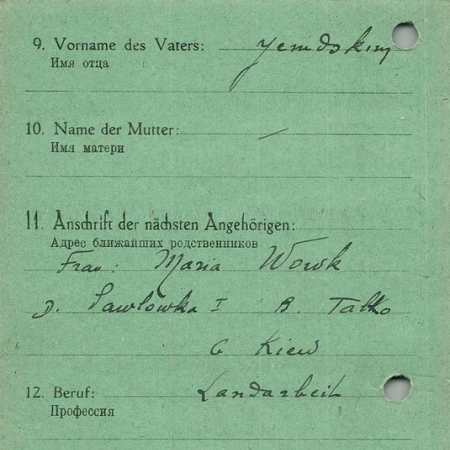 9. Vorname des Vaters:
Имя отца
10. Name der Mutter: —
Имя матери
11. Anschrift der nächsten Angehörigen:
Адрес ближайших родственников
Frau: Maria Wowk
D. Pawlowka I B. Talko
G Kiew
12. Beruf: Landarbeit
Профессия